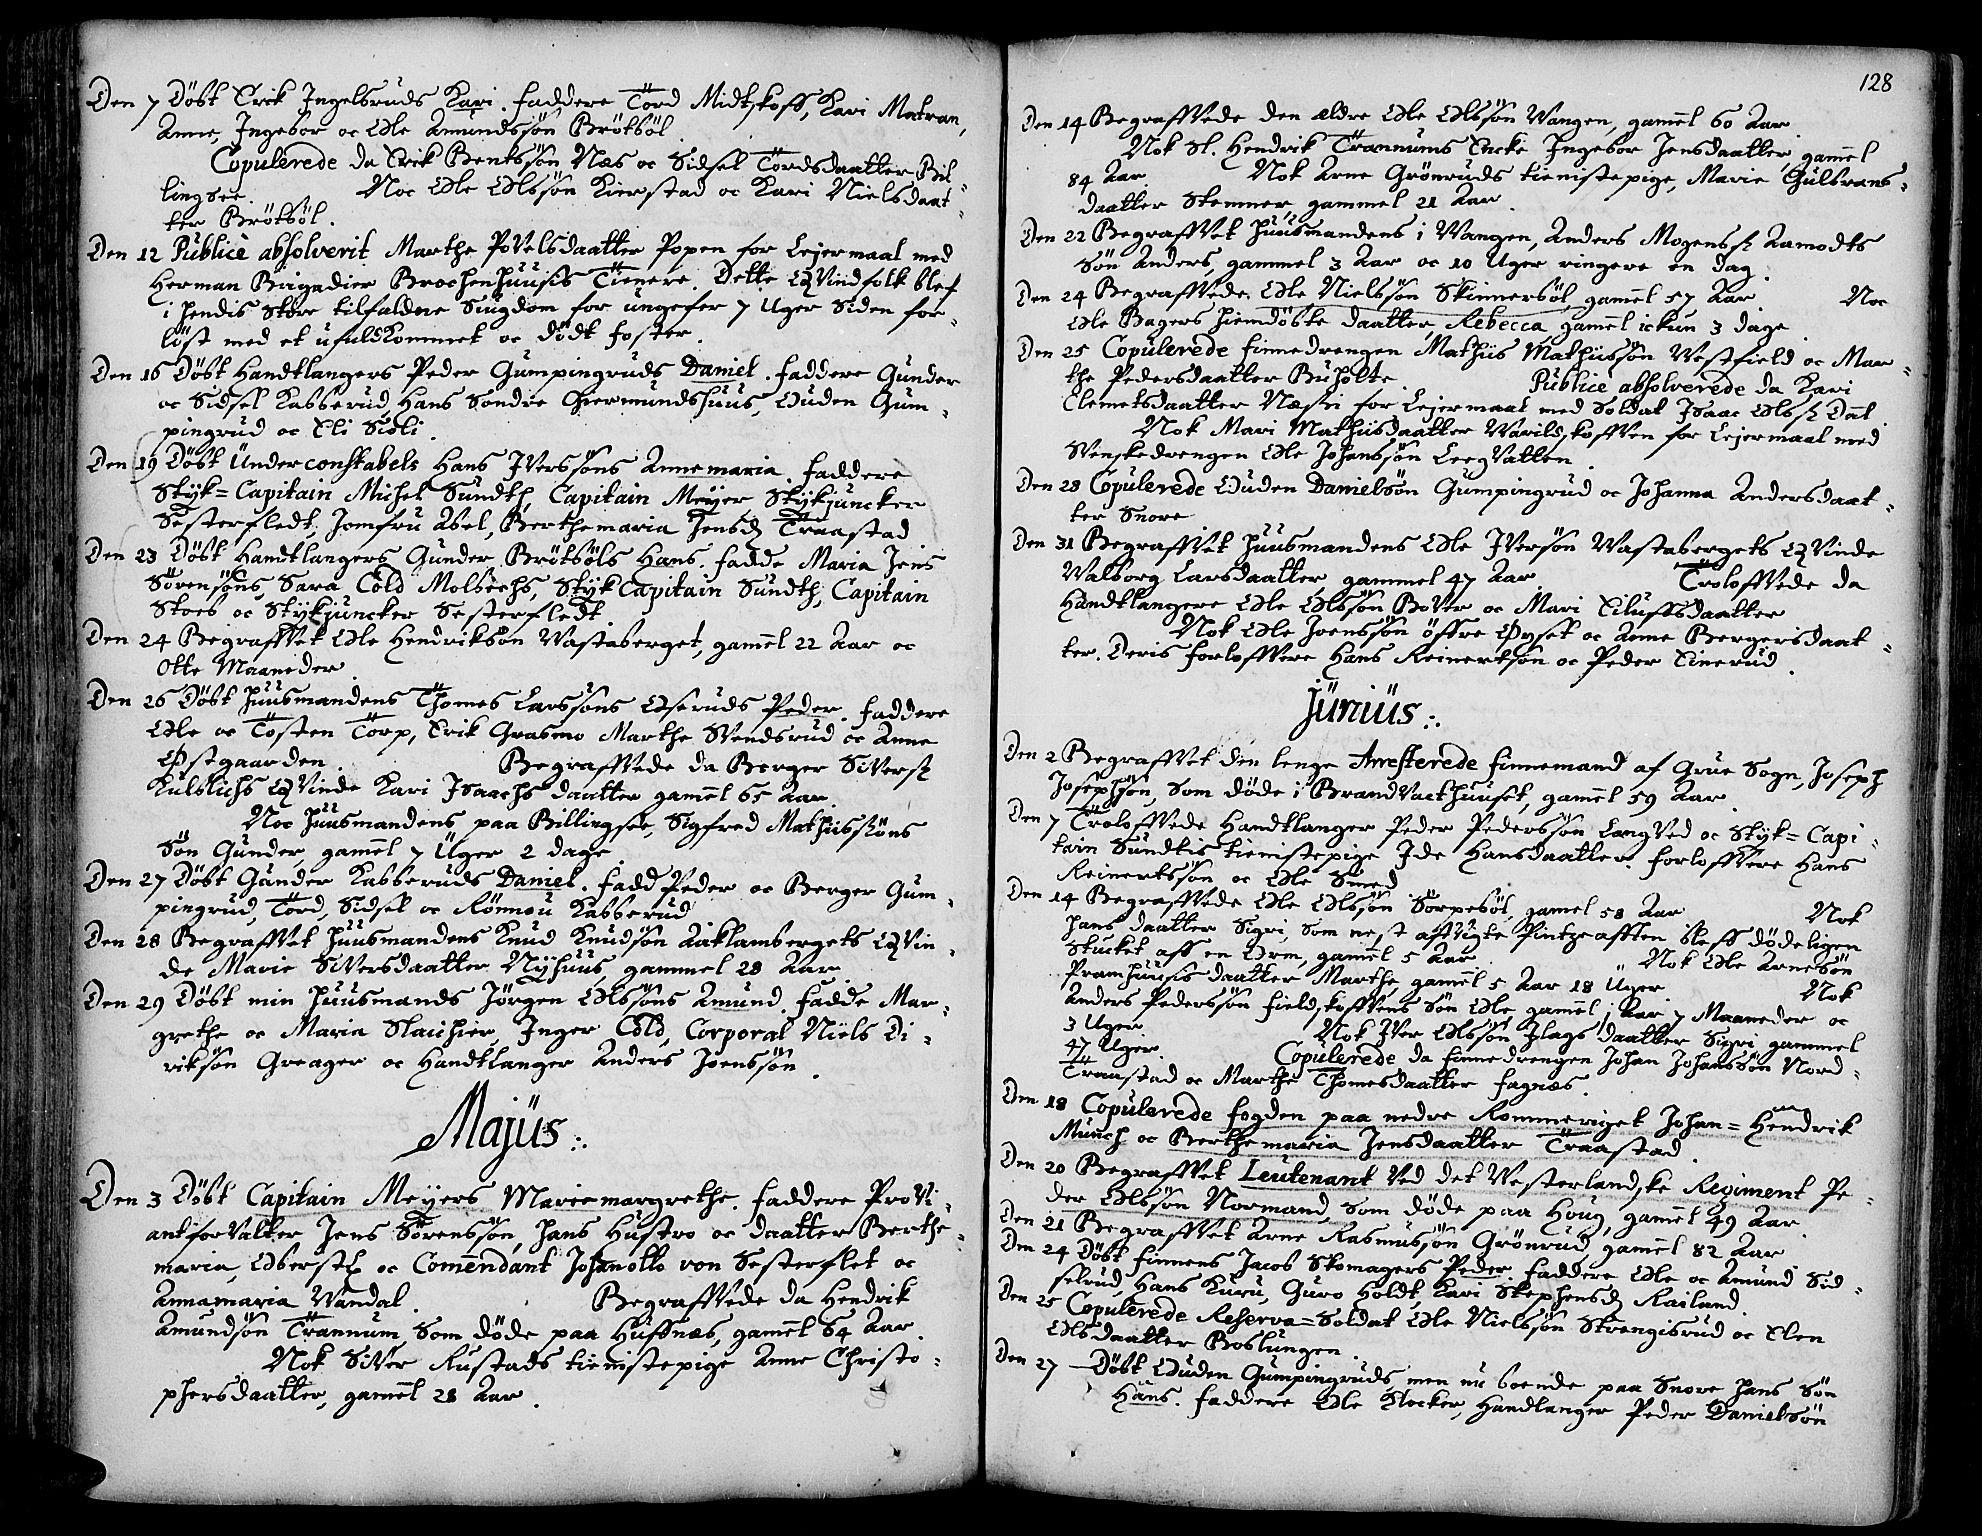 Den 7 Döbt Erik Ingelsruds Kari. Faddere Tord Midtskoff, Kari Matran,
Anne, Ingebor oc Ole Amundssön Brötböl.
Copulerede da Erik Bentsön Næs oc Sidsel Tordsdaatter Bil-
lingsee. Noc Ole Olssön Kierstad oc Kari Nielsdaat-
ter Brötböl.
Den 12 Publicè absolverit Marthe Povelsdaatter Popen for Lejermaal med
Herman Brigadier Brochenhuusis Tienere. Dette Qvindfolk blef
i hendis store tilfaldne Siugdom for ungefer 7 Uger siden for-
löst med et ufuldkommet oc dödt foster.
Den 16 Döbt Handtlangers Peder Gumpingruds Daniel. Faddere Gunder
oc Sidsel Kabberud, Hans Söndre Ghiermundshuus, Ouden Gum-
pingrud oc Eli Sidli.
Den 19 Döbt Underconstabels Hans Iverssöns Annemaria. Faddere
Styk=Capitain Michel Sundth, Capitain Meyer Stykjuncker
Sesterfledt, Jomfru Abel, Berthemaria Jensd. Traastad
Den 23 Döbt Handtlangers Gunder Brötböls Hans. Fadde Maria Jens
Sörensöns, Sara Cold Molbechs, Styk Capitain Sundth, Capitain
Stoes oc Stykjuncker Sesterfledt.
Den 24 Begraffvet Ole Hendriksön Vastaberget, gamel 22 Aar oc
Otte Maaneder.
Den 26 Döbt Huusmandens Thomes Larssöns Oseruds Peder. Faddere
Ole oc Tosten Torp, Erik Grasmo Marthe Svendsrud oc Anne
Östgaarden. Begraffvede da Berger Siversz
Kulblichs Qvinde Kari Isaachs daatter gamel 65 Aar.
Noc Huusmandens paa Billingsee, Sigfred Mathiissöns
Sön Gunder, gamel 7 Uger 2 dage
Den 27 Döbt Gunder Kabberuds Daniel. Fadd Peder oc Berger Gum-
pingrud, Tord, Sidsel oc Rönnou Kabberud
Den 28 Begraffvet Huusmandens Knud Knudsön Aaklambergets Qvin-
de Marie Siversdaatter Nyhuus, gammel 28 Aar
Den 29 Döbt min Huusmands Jörgen Olssöns Amund. Fadde Mar-
grethe oc Maria Stachier, Inger Cold, Corporal Niels Di-
riksön Greager oc Handtlanger Anders Joenssön.
Majus.
Den 3 Döbt Capitain Meyers Mariemargrethe. Faddere Provi-
antforvalter Jens Sörenssön, hans Hustro oc daatter Berthe-
maria, Oberstl. oc Comendant Johanotto von Sesterflet oc
Annamaria Wandal. Begraffvede da Hendrik
Amundsön Trannum, som döde paa Huffnæs, gamel 64 Aar.
Nok Siver Rustads tienistepige Anne Christo-
phersdaatter, gamel 28 Aar.
128
Den 14 Begraffvede den ældre Ole Olssön Wangen, gamel 60 Aar.
Nok Sl. Hendrik Trannums Encke Ingebor Jensdaatter gamel
84 Aar. Nok Arne Grönruds tienistepige, Marie Gulbrans-
daatter Stemner, gammel 21 Aar.
Den 22 Begraffvet Huusmandens i Wangen, Anders Mogensz Aamodts
Sön Anders, gammel 3 Aar oc 10 Uger ringere en dag
Den 24 Begraffvede Ole Nielssön Skinnerböl, gamel 57 Aar. Noc
Ole Bagers hiemdöbte daatter Rebecca gamel ickun 3 dage
Den 25 Copulerede finnedrengen Mathiis Mathiissön Westfield oc Mar-
the Pedersdaatter Buholte. Publicè absolverede da Kari
Clemetsdaatter Næste for Lejermaal med Soldat Isaac Olsz Dat
Nok Mari Mathiisdaatter Varildskoffven for Lejermaal med
Svenskedrengen Ole Johanssön Leegvatten
Den 28 Copulerede Ouden Danielsön Gumpingrud oc Johanna Andersdaat-
ter Snore
Den 31 Begraffvet Huusmandens Ole Iversön Vastabergets Qvinde
Valborg Larsdaatter, gammel 47 Aar. Troloffvede da
Handtlangere Ole Olssön Bover oc Mari Eiluffsdaatter
Nok Ole Joenssön öffre Öyset oc Anne Bergersdaat-
ter. Deris forloffvere Hans Reinertsön oc Peder Einerud.
Junius.
Den 2 Begraffvet den lenge Arresterede finnemand af Grue Sogn, Joseph
Josephsön, som döde i Brandvacthuuset, gamel 59 Aar.
Den 7 Troloffvede Handtlanger Peder Pederssön Langved oc Styk=Capi-
tain Sundtis tienistepige Ide Hansdaatter. Forloffvere Hans
Reinertssön oc Ole Smed
Den 14 Begraffvede Ole Olssön Sorpeböl, gamel 58 Aar. Nok
hans daatter Sigri, som nest affvigte Pintzeafften bleff dödeligen
Stucket aff en Orm, gamel 5 Aar. Nok Ole Arnesön
Pramhuusis daatter Marthe, gamel 5 Aar 18 Uger. Nok
Anders Pederssön Fieldskoffvens Sön Ole gamel 1 Aar 7 Maaneder oc
3 Uger. Nok Iver Olssön Ilags daatter Sigri gammel
47 Uger. Copulerede da finnedrengen Johan Johanssön Nord-
Traastad oc Marthe Thomesdaatter Fagnæs.
Den 18 Copulerede fogden paa nedre Rommeriget Johan=Hendrik
Munch oc Berthemaria Jensdaatter Traastad.
Den 20 Begraffvet Leutenant ved det Vesterlandske Regiment Pe-
der Olssön Normand, som döde paa Houg, gamel 49 Aar.
Den 21 Begraffvet Arne Rasmussön Grönrud, gamel 82 Aar
Den 24 Döbt finnens Jacob Skomagers Peder. Faddere Ole oc Amund Sid-
selrud, Hans Kuru, Guro Holdt, Kari Stephensd Railand.
Den 25 Copulerede Reserva=Soldat Ole Nielssön Strengisrud oc Elen
Olsdaatter Boslungen.
Den 27 Döbt Ouden Gumpingruds men nu boende paa Snore hans Sön
Hans. Faddere Ole Klocker, Handlanger Peder Danielsön